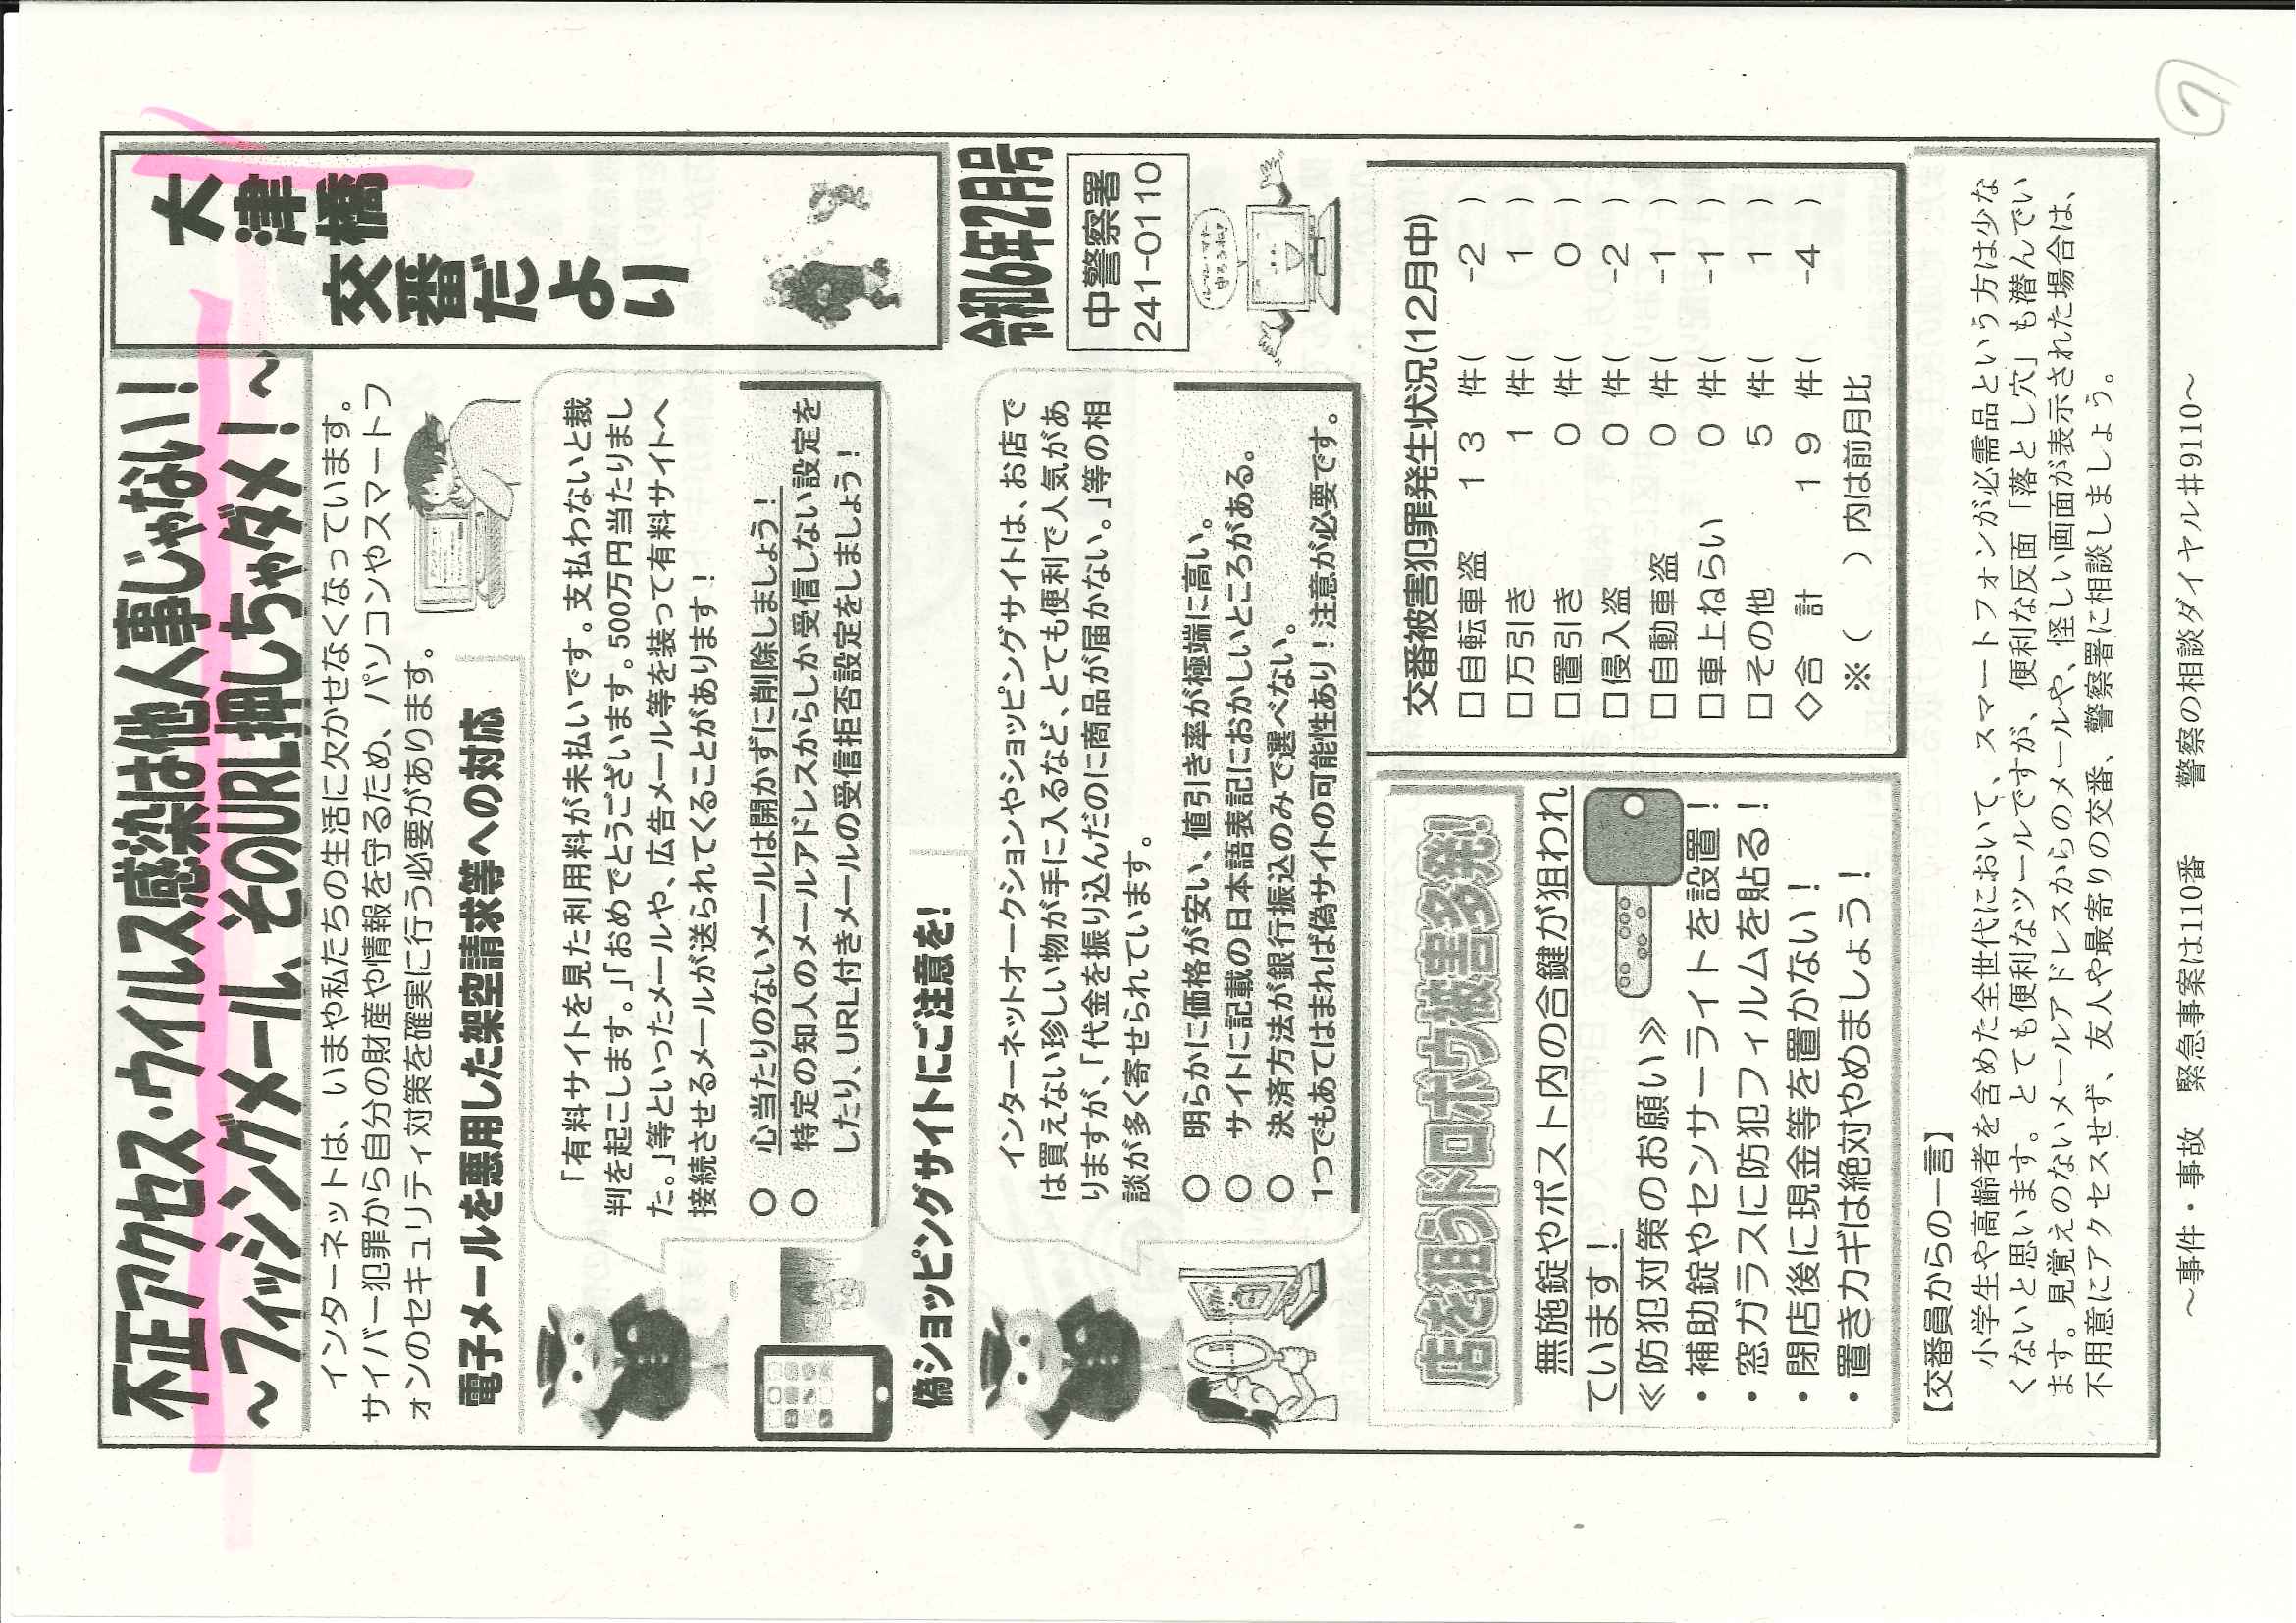 不正アクセス・ウイルス感染は他人事じゃない！
～フィッシングメール、そのURL押しちゃダメ！～
大津橋
交番だより
令和6年2月号
中警察署
241-0110
インターネットは、いまや私たちの生活に欠かせなくなっています。
サイバー犯罪から自分の財産や情報を守るため、パソコンやスマートフ
ォンのセキュリティ対策を確実に行う必要があります。
電子メールを悪用した架空請求等への対応
「有料サイトを見た利用料が未払いです。支払わないと裁
判を起こします。」「おめでとうございます。500万円当たりまし
た。」等といったメールや、広告メール等を装って有料サイトへ
接続させるメールが送られてくることがあります！
○ 心当たりのないメールは開かずに削除しましょう！
○ 特定の知人のメールアドレスからしか受信しない設定を
したり、URL付きメールの受信拒否設定をしましょう！
偽ショッピングサイトにご注意を!
インターネットオークションやショッピングサイトは、お店で
は買えない珍しい物が手に入るなど、とても便利で人気があ
りますが、「代金を振り込んだのに商品が届かない。」等の相
談が多く寄せられています。
○ 明らかに価格が安い、値引き率が極端に高い。
○ サイトに記載の日本語表記におかしいところがある。
○ 決済方法が銀行振込のみで選べない。
1つでもあてはまれば偽サイトの可能性あり！注意が必要です。
店を狙うドロボウ被害多発!
無施錠やポスト内の合鍵が狙われ
ています！
≪防犯対策のお願い≫
・補助錠やセンサーライトを設置！
・窓ガラスに防犯フィルムを貼る！
・閉店後に現金等を置かない！
・置きカギは絶対やめましょう！
交番被害犯罪発生状況(12月中)
□自転車盗 13 件( -2 )
□万引き 1 件( 1 )
□置引き 0 件( 0 )
□侵入盗 0 件( -2 )
□自動車盗 0 件( -1 )
□車上ねらい 0 件( -1 )
□その他 5 件( 1 )
◇合 計 19 件( -4 )
※（ ）内は前月比
【交番員からの一言】
小学生や高齢者を含めた全世代において、スマートフォンが必需品という方は少な
くないと思います。とても便利なツールですが、便利な反面「落とし穴」も潜んでい
ます。見覚えのないメールアドレスからのメールや、怪しい画面が表示された場合は、
不用意にアクセスせず、友人や最寄りの交番、警察署に相談しましょう。
～事件・事故 緊急事案は110番 警察の相談ダイヤル＃9110～